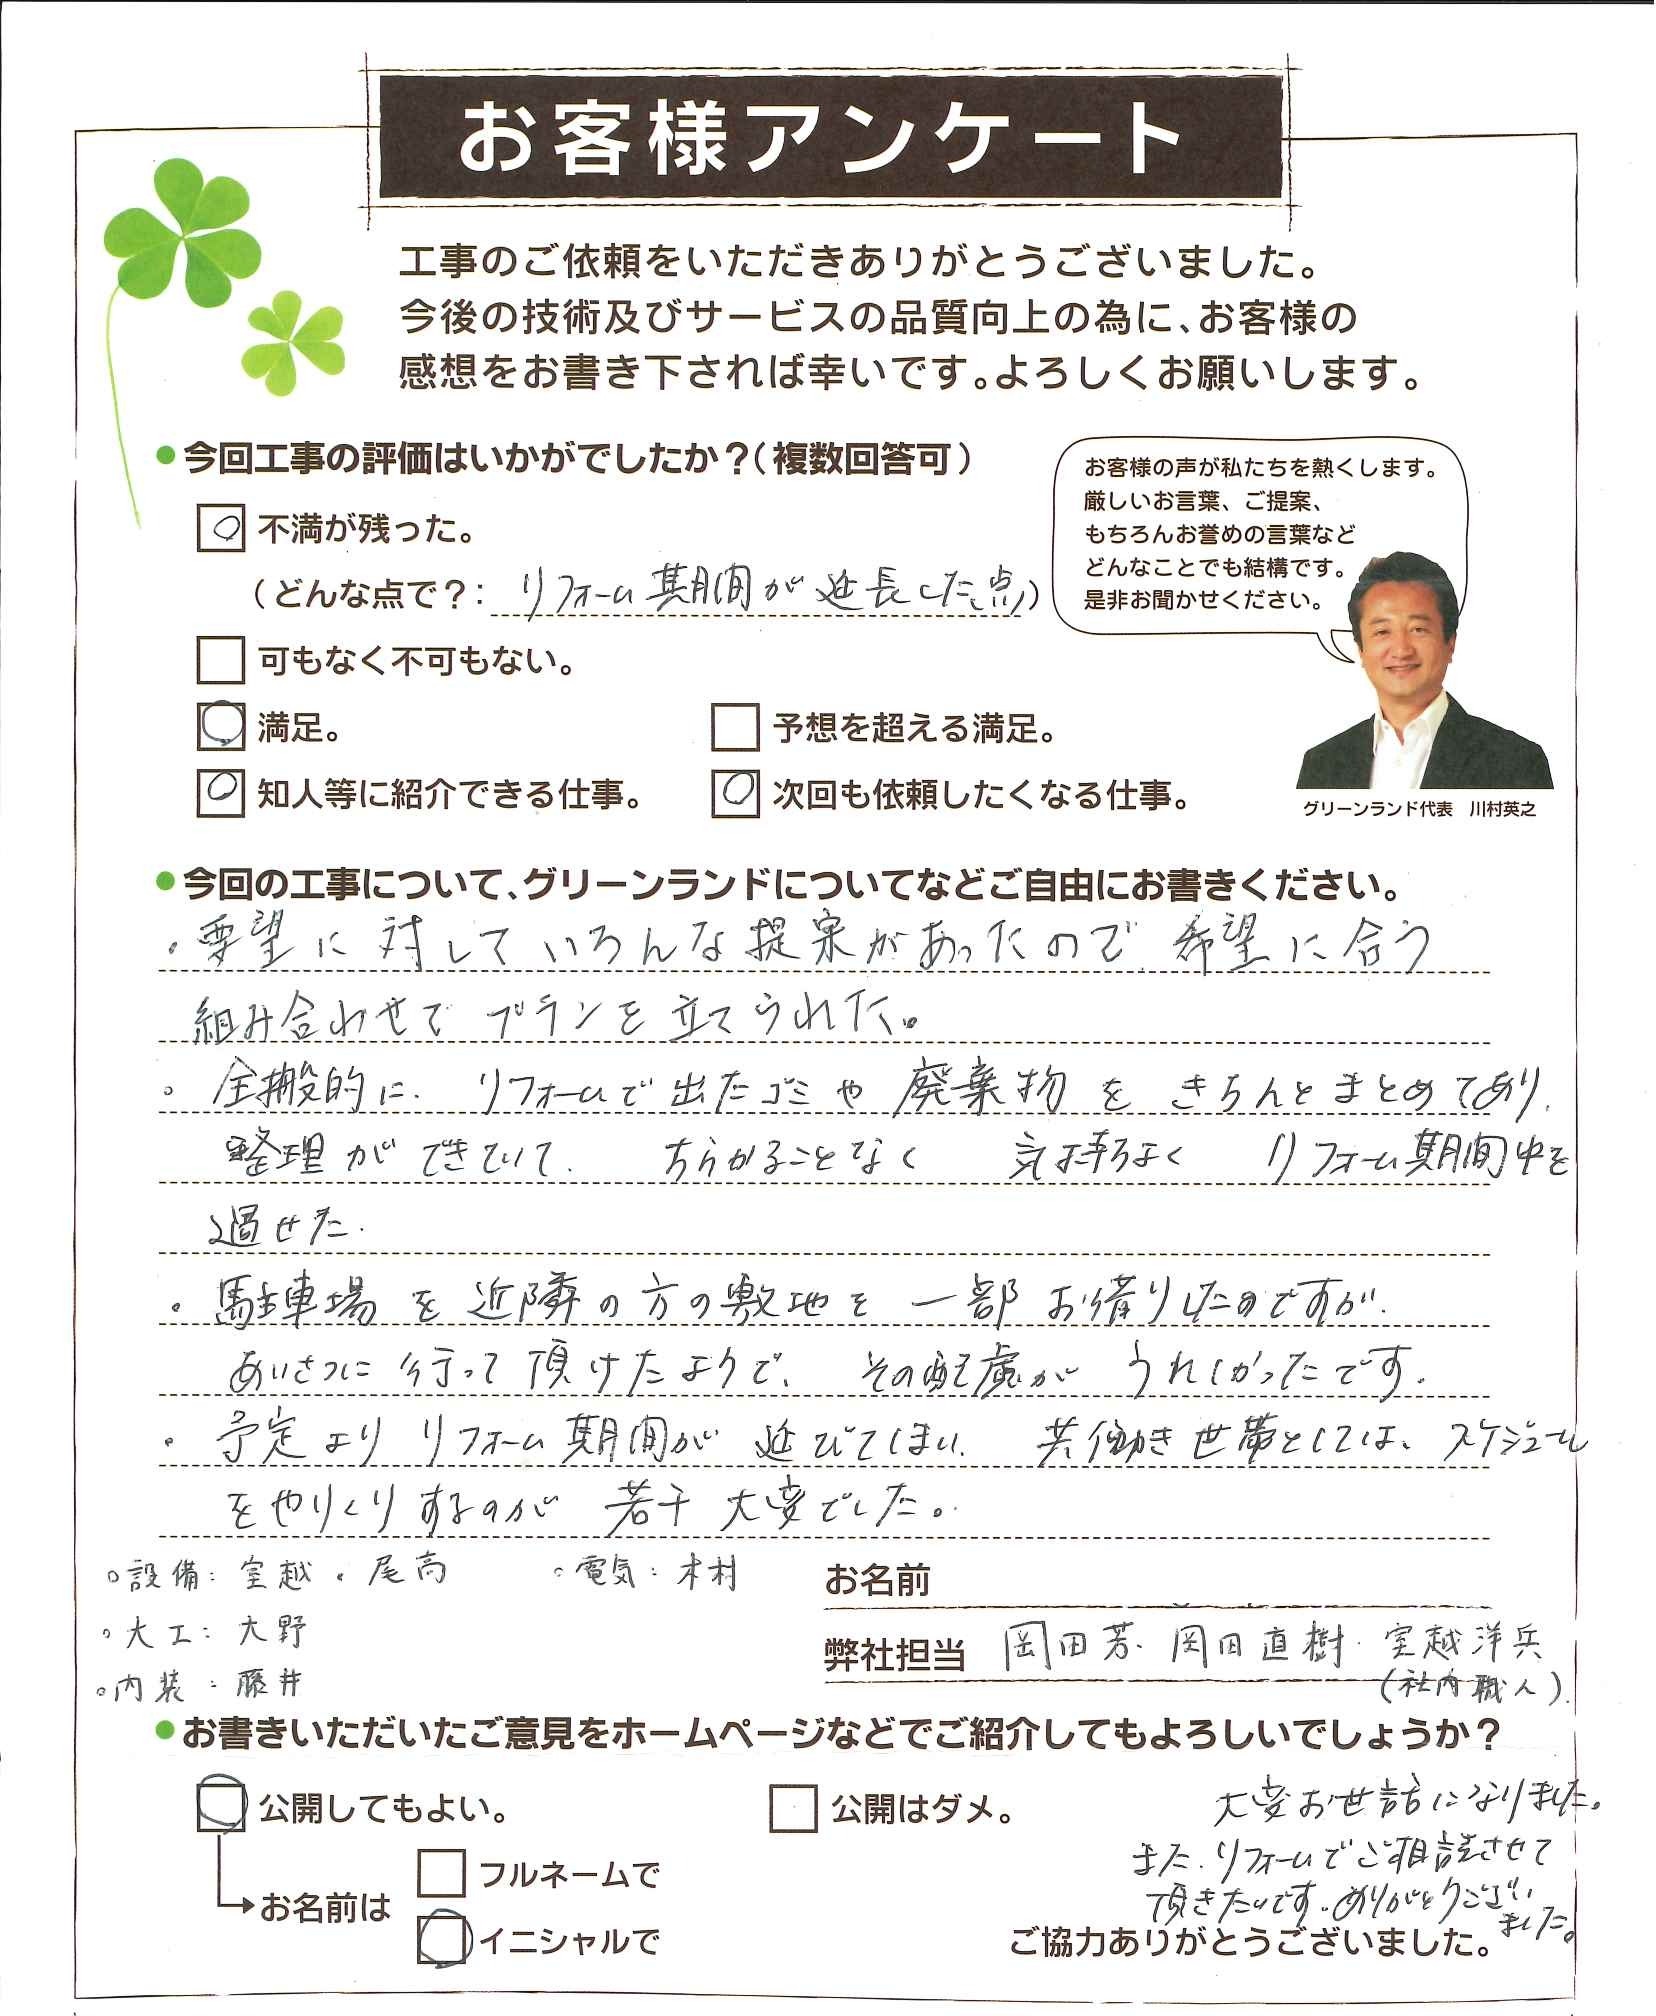 お客様アンケート
工事のご依頼をいただきありがとうございました。
今後の技術及びサービスの品質向上の為に、お客様の
感想をお書き下されば幸いです。よろしくお願いします。
●今回工事の評価はいかがでしたか？（複数回答可）
不満が残った。
（どんな点で？： リフォーム期間が延長した点）
可もなく不可もない。
満足。
予想を超える満足。
知人等に紹介できる仕事。
次回も依頼したくなる仕事。
お客様の声が私たちを熱くします。
厳しいお言葉、ご提案、
もちろんお誉めの言葉など
どんなことでも結構です。
是非お聞かせください。
グリーンランド代表　川村英之
●今回の工事について、グリーンランドについてなどご自由にお書きください。
・要望に対していろんな提案があったので、希望に合う
組み合わせでプランを立てられた。
・全搬的に、リフォームで出たゴミや廃棄物をきちんとまとめてあり、
整理ができていて、ちらかることなく気持ちよくリフォーム期間中を
過せた。
・駐車場を近隣の方の敷地を一部お借りしたのですが、
あいさつに行って頂けたようで、その配慮がうれしかったです。
・予定よりリフォーム期間が延びてしまい、共働き世帯としては、スケジュール
をやりくりするのが若干大変でした。
○設備：室越・尾高　○電気：木村
○大工：大野
○内装：藤井
お名前
弊社担当 岡田芳・岡田直樹・室越洋兵
（社内職人）
●お書きいただいたご意見をホームページなどでご紹介してもよろしいでしょうか？
公開してもよい。
公開はダメ。
お名前は
フルネームで
イニシャルで
大変お世話になりました。
また、リフォームでご相談させて
頂きたいです。ありがとうござい
ました。
ご協力ありがとうございました。